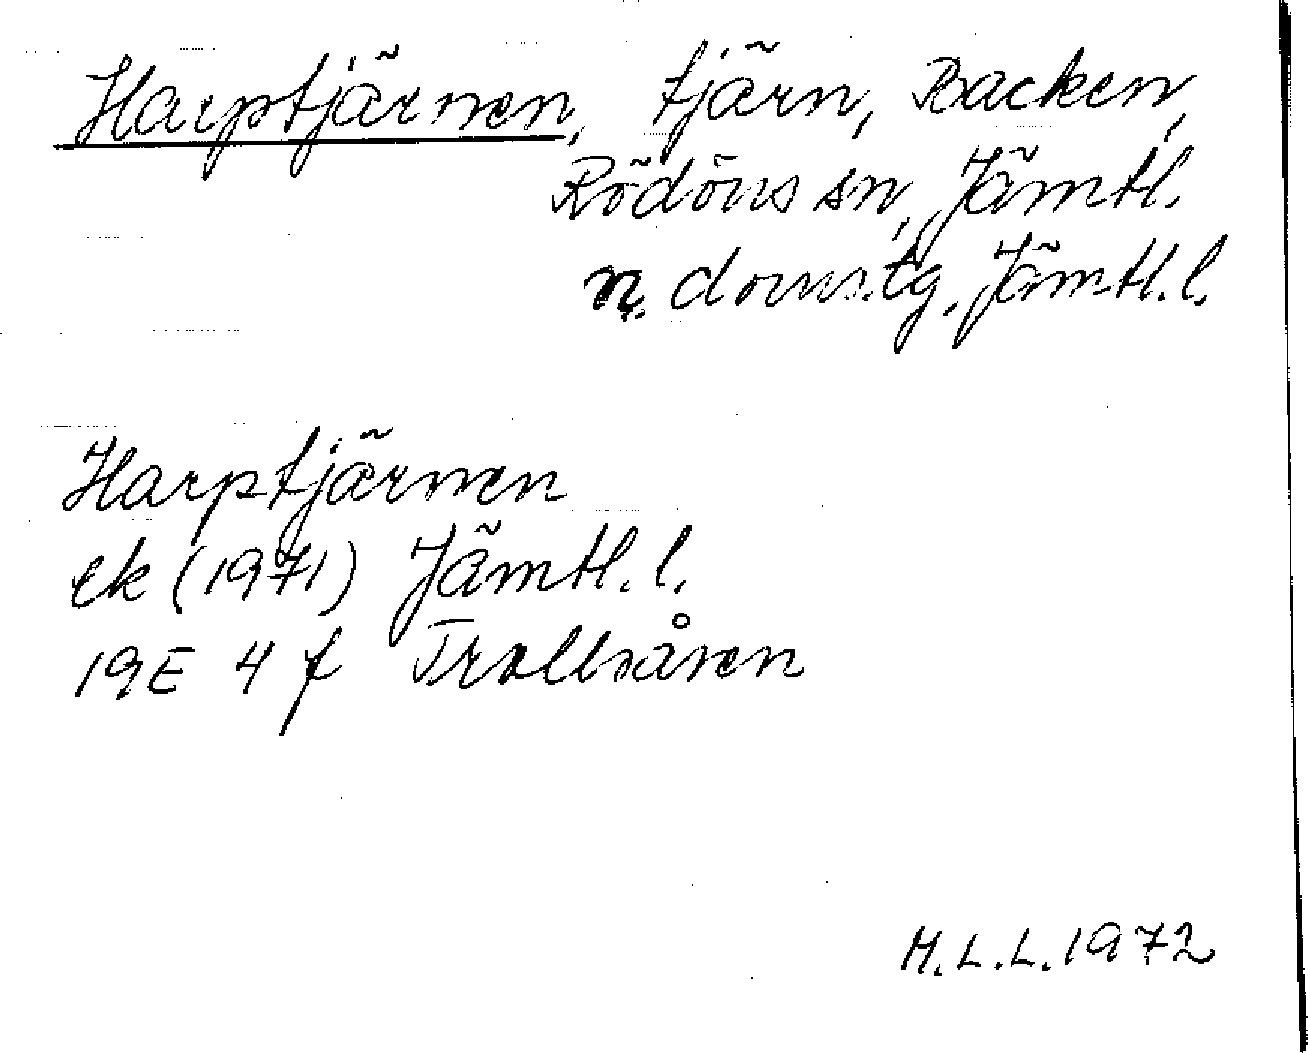 Harptjärnen, tjärn, Backen,
Rödöns sn, Jämtl.
n. doms.tg. Jämtl. l.
Harptjärnen
ek (1971) Jämtl. l.
19E 4 f Trollsåsen
H.L.L. 1972